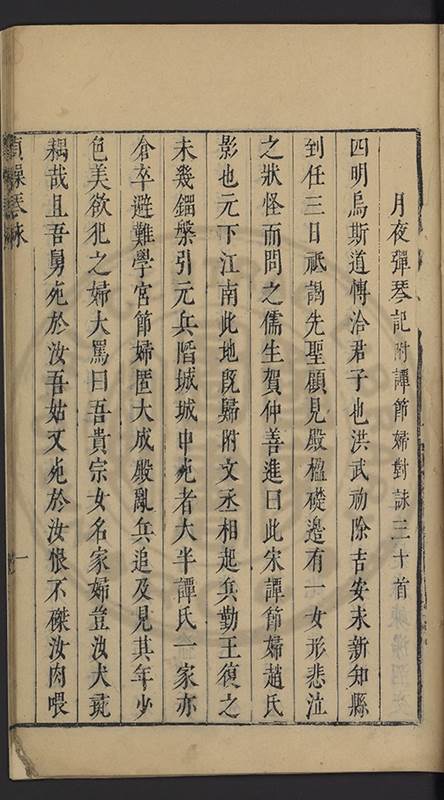 月夜彈琴記附譚節婦對詠三十首
四明烏斯道博洽君子也洪武初除吉安永新知縣
到任三日祗謁先聖顧見殿楹礎邊有一女形悲泣
之狀怪而問之儒生賀仲善進曰此宋譚節婦趙氏
影也元下江南此地旣歸附文丞相起兵勤王復之
未幾鏐槃引元兵陷城城中死者大半譚氏一家亦
倉卒避難學宮節婦匿大成殿亂兵追及見其年少
色美欲犯之婦大罵曰吾貴宗女名家婦豈汝犬彘
耦哉且吾舅死於汝吾姑又死於汝恨不磔汝肉喂
貞操琴詠
一